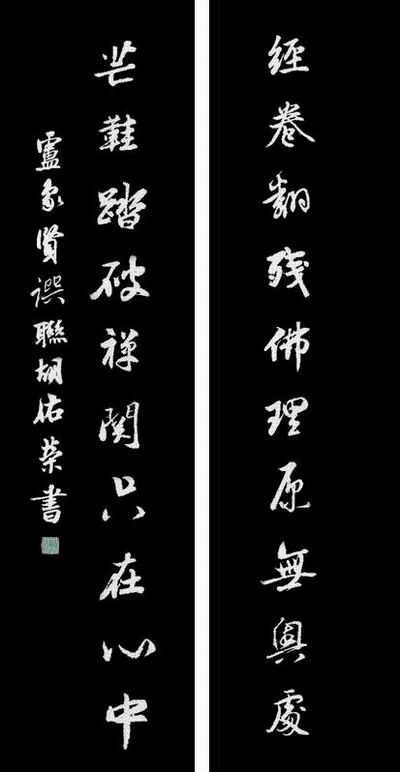 經卷翻殘佛理原無奧處
芒鞋踏破禅關只在心中
盧象賢撰聯胡佑榮書